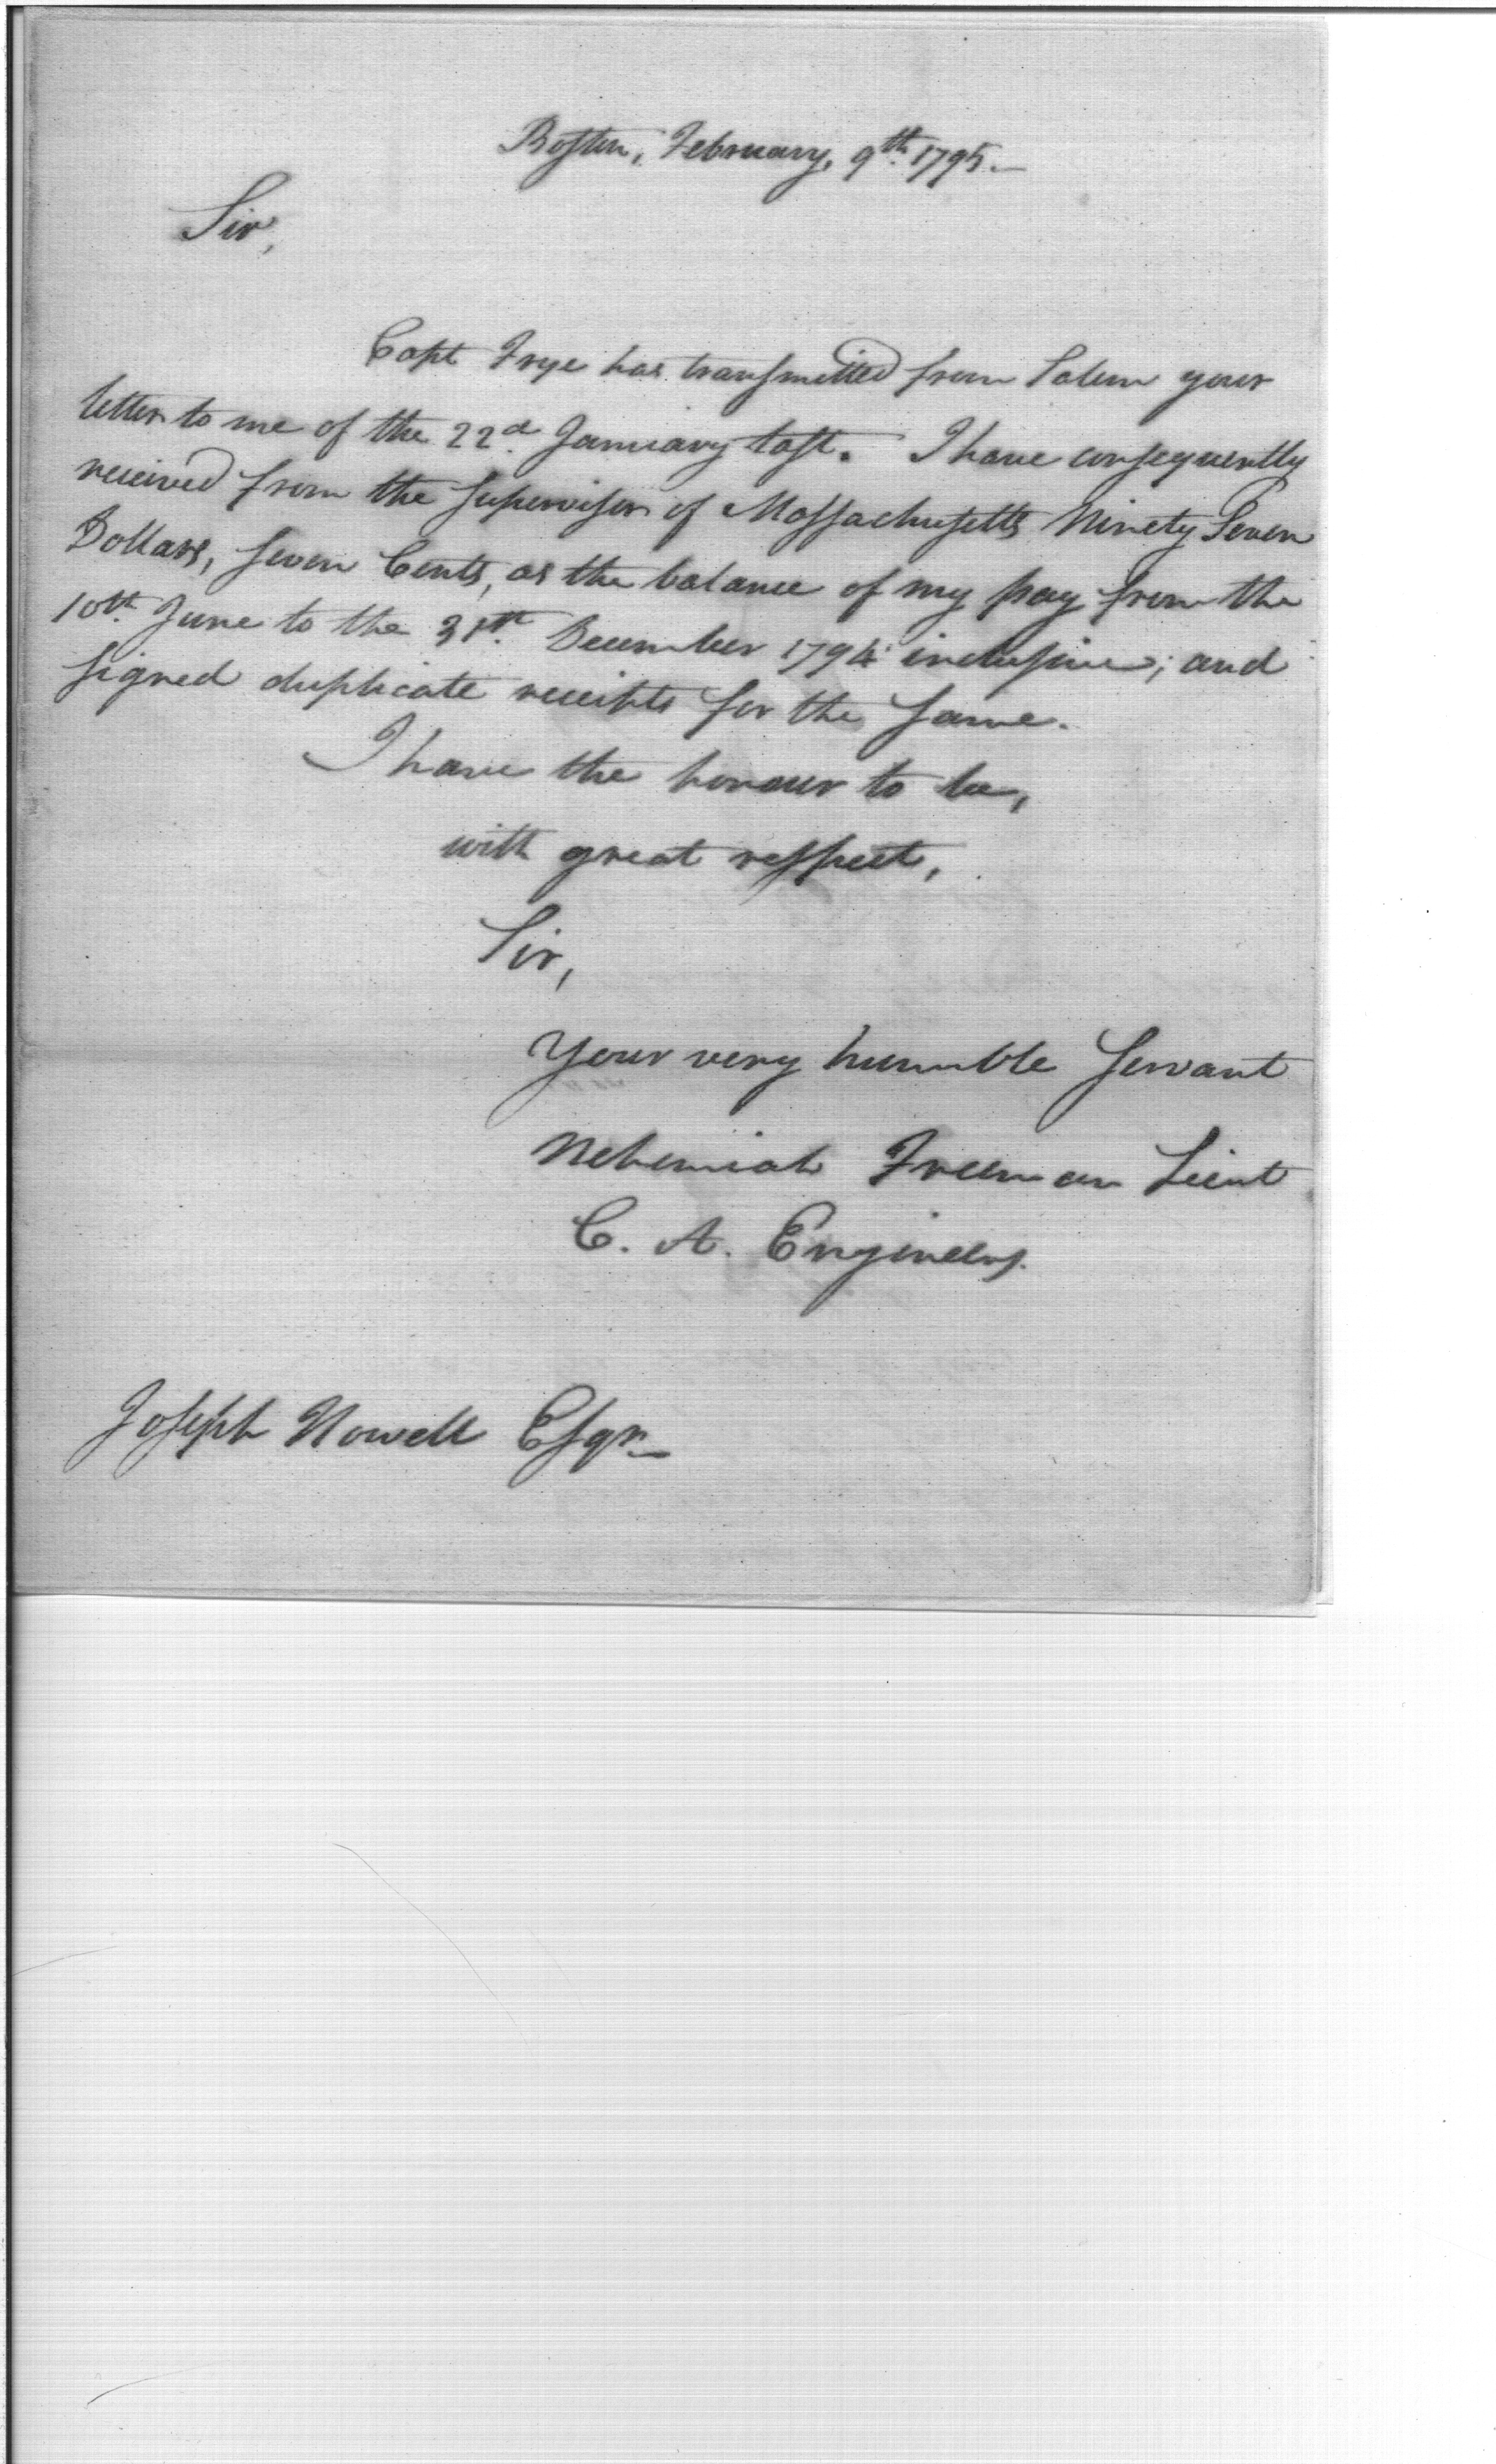 Boston, February, 9th. 1795.—
Sir,
Capt Frye has transmitted from Salem your
letter to me of the 22d. January last. I have consequently
received from the supervisor of Massachusetts Ninety Seven
Dollars, seven Cents, as the balance of my pay from the
10th. June to the 31st. December 1794 inclusive; and
signed duplicate receipts for the same.
I have the honour to be,
with great respect,
Sir,
Your very humble servant
Nehemiah Freeman Lieut
C. A. Engineers.
Joseph Howell Esqr—